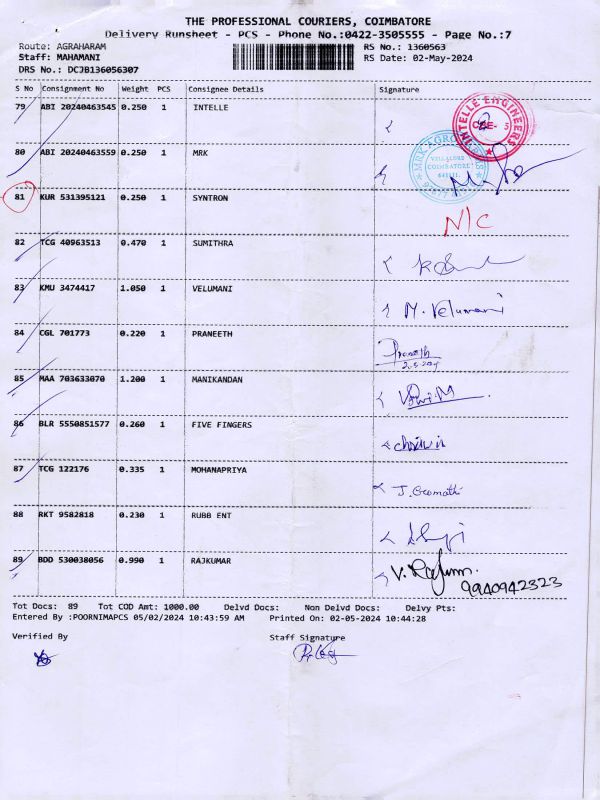 THE PROFESSIONAL COURIERS, COIMBATORE
Delivery Runsheet - PCS - Phone No.:0422-3505555 - Page No.:7
Route: AGRAHARAM
RS No.: 1360563
Staff: MAHAMANI
RS Date: 02-May-2024
DRS No.: DCJB136056307
S No Consignment No Weight PCS Consignee Details Signature
79 ABI 20240463545 0.250 1 INTELLE
INTELLE ENGINEERS
80 ABI 20240463559 0.250 1 MRK
COIMBATORE
81 KUR 531395121 0.250 1 SYNTRON N/C
82 TCG 40963513 0.470 1 SUMITHRA
83 KMU 3474417 1.050 1 VELUMANI M. Velumani
84 CGL 701773 0.220 1 PRANEETH Praneeth
85 MAA 703633070 1.200 1 MANIKANDAN
86 BLR 5550851577 0.260 1 FIVE FINGERS
87 TCG 122176 0.335 1 MOHANAPRIYA J. Gomathi
88 RKT 9582818 0.230 1 RUBB ENT
89 BDD 530038056 0.990 1 RAJKUMAR
9940942323
Tot Docs: 89 Tot COD Amt: 1000.00 Delvd Docs: Non Delvd Docs: Delvy Pts:
Entered By :POORNIMAPCS 05/02/2024 10:43:59 AM Printed On: 02-05-2024 10:44:28
Verified By Staff Signature